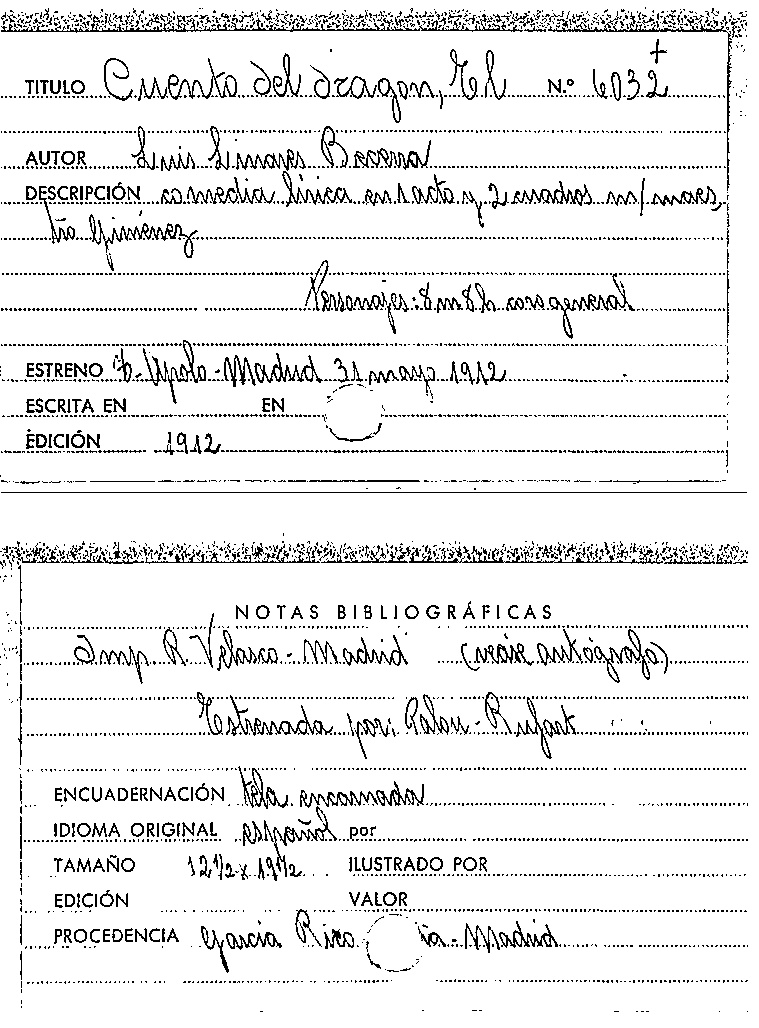 TITULO Cuento del dragon, El N.º 6032 +
AUTOR Luis Linares Becerra
DESCRIPCIÓN comedia lírica en 1 acto y 2 cuadros m/ maes,
tro Giménez
Personajes: 8 m 8 h coro general
ESTRENO T. Apolo - Madrid 31 mayo 1912
ESCRITA EN EN
EDICIÓN 1912
NOTAS BIBLIOGRÁFICAS
Imp. R. Velasco - Madrid (véase autógrafo)
Estrenada por: Palou - Rufart
ENCUADERNACIÓN tela encarnada
IDIOMA ORIGINAL español por
TAMAÑO 12 1/2 x 19 1/2 ILUSTRADO POR
EDICIÓN VALOR
PROCEDENCIA García Rico - Madrid